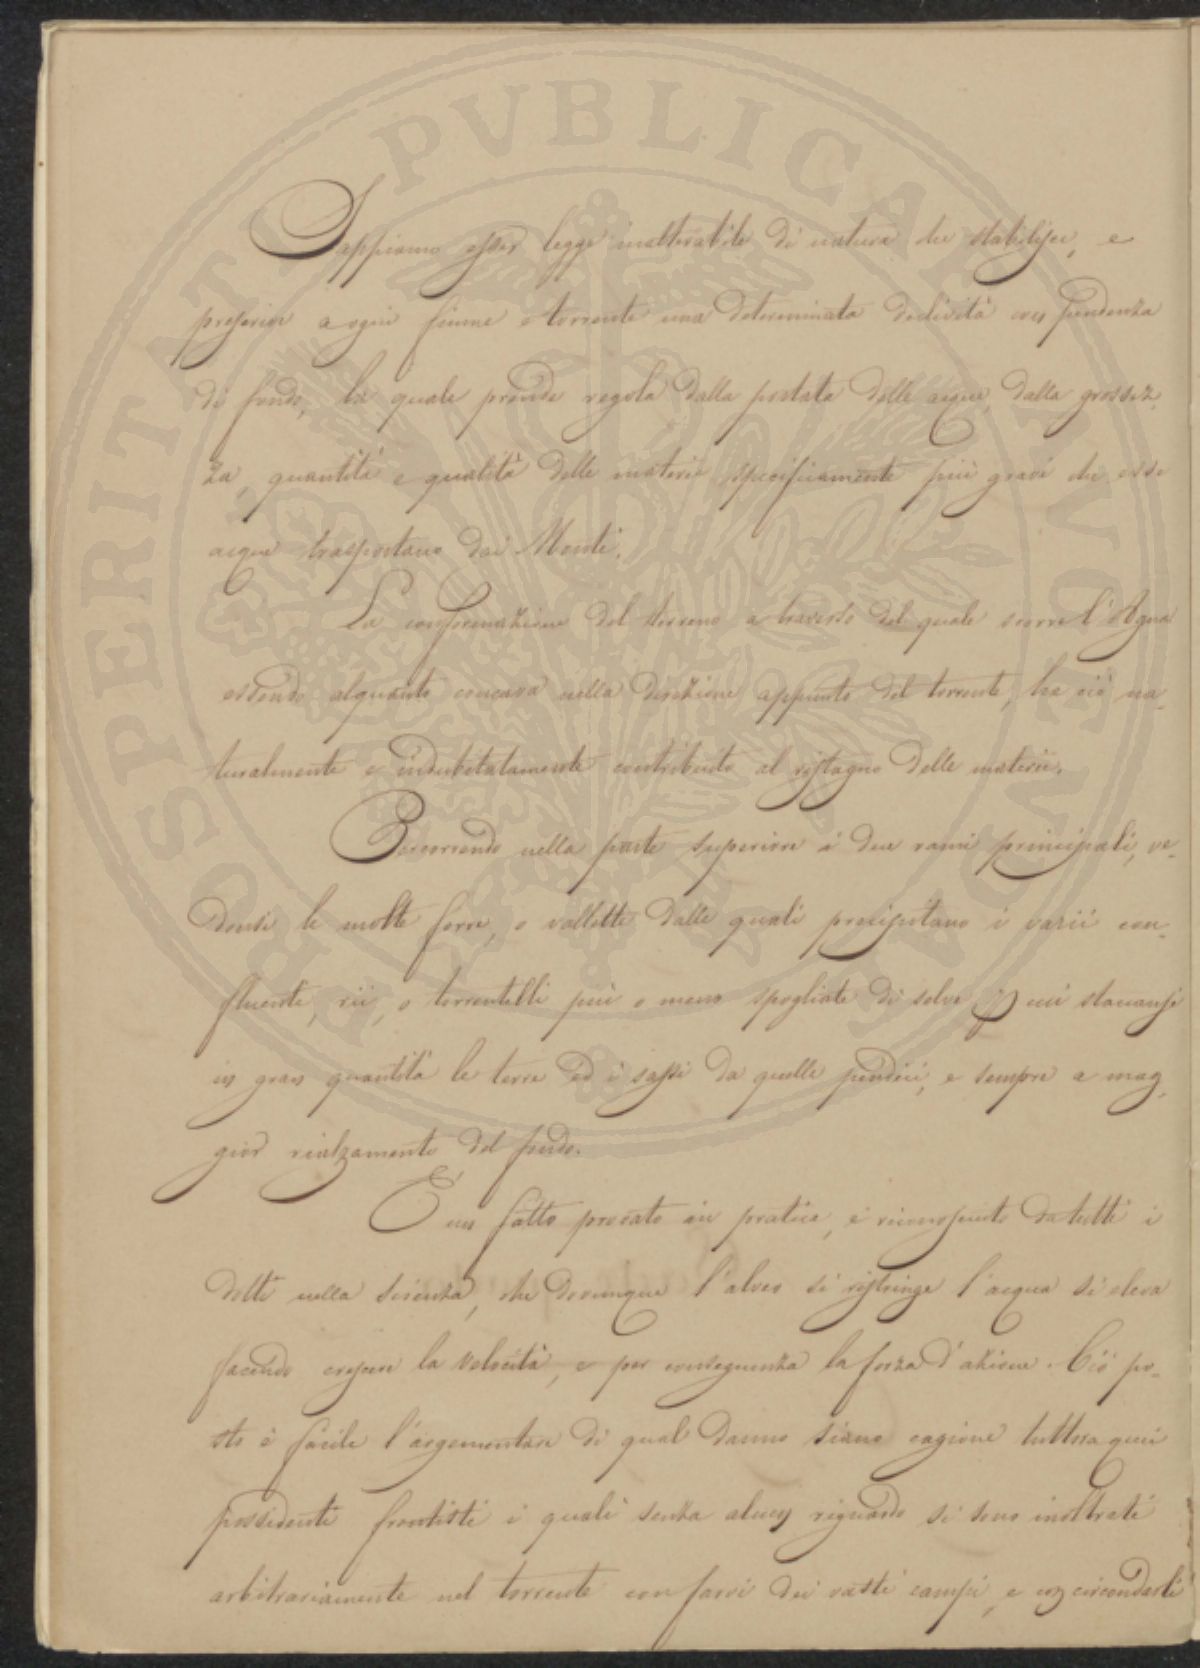 Sappiamo esser legge inalterabile di natura che stabilisce, e
prescrive a ogni fiume o torrente una determinata declività con pendenza
di fondo, la quale prende regola dalla portata delle acque, dalla grossez-
za, quantità e qualità delle materie specificamente più gravi che esse
acque trasportano dai Monti.
La conformazione del terreno a traverso del quale scorre l'Agna
essendo alquanto concava nella direzione appunto del torrente, ha ciò na-
turalmente e indubitatamente contribuito al ristagno delle materie.
Percorrendo nella parte superiore i due rami principali, ve-
donsi le molte forre, o vallette dalle quali precipitano i varii con-
fluenti, rii, o torrentelli più o meno spogliate di selve cui staccansi
in gran quantità le terre ed i sassi da quelle pendici, e sempre a mag-
gior rialzamento del fondo.
È un fatto provato in pratica, e riconosciuto da tutti i
dotti nella scienza, che dovunque l'alveo si ristringe l'acqua si eleva
facendo crescere la velocità, e per conseguenza la forza d'azione. Ciò po-
sto è facile l'argomentare di qual danno siano cagione tuttora quei
possidenti frontisti i quali senza alcun riguardo si sono inoltrati
arbitrariamente nel torrente con farvi dei vasti campi, e con circondarli
PROSPERITATI PVBLICAE